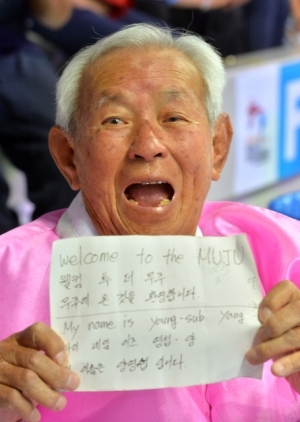 welcome to the MUJU
웰컴 투 더 무주
무주에 온 것을 환영합니다
My name is young-sub Yang
마이 네임 이즈 영섭-양
이름은 양영섭 입니다